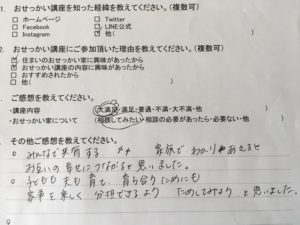 1. おせっかい講座を知った経緯を教えてください。(複数可)
□ ホームページ □ Twitter
□ Facebook □ LINE公式
□ Instagram ☑ 他( )
2. おせっかい講座にご参加頂いた理由を教えてください。(複数可)
☑ 住まいのおせっかい家に興味があったから
☑ おせっかい講座の内容に興味があったから
□ おすすめされたから
□ 他( )
3. ご感想を教えてください。
・講座内容 大満足・満足・普通・不満・大不満・他
・おせっかい家について (相談してみたい・相談の必要があったら・必要ない・他 )
その他ご感想を教えてください。
○ みんなで共有する 家族で わかりあえると
お互いの幸せにつながると思いました。
○ 子どもも 夫も 育て、育り合うためにも
家事を楽しく 分担できるよう ためしてみようと思いました。